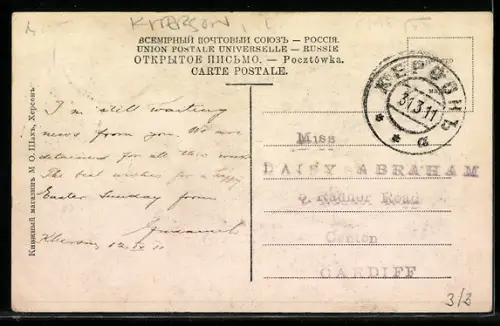 KHERSON
ВСЕМІРНЫЙ ПОЧТОВЫЙ СОЮЗЪ. — РОССІЯ.
UNION POSTALE UNIVERSELLE. — RUSSIE
ОТКРЫТОЕ ПИСЬМО. — Pocztówka.
CARTE POSTALE.
ХЕРСОНЪ
31.3.11
а
Книжный магазинъ М. О. Шахъ, Херсонъ
I'm still waiting
news from you. We are
detained for all this
The best wishes for a happy
Easter Sunday from
Kherson
Miss
DAISY ABRAHAM
Radnor Road
Canton
CARDIFF
3/2